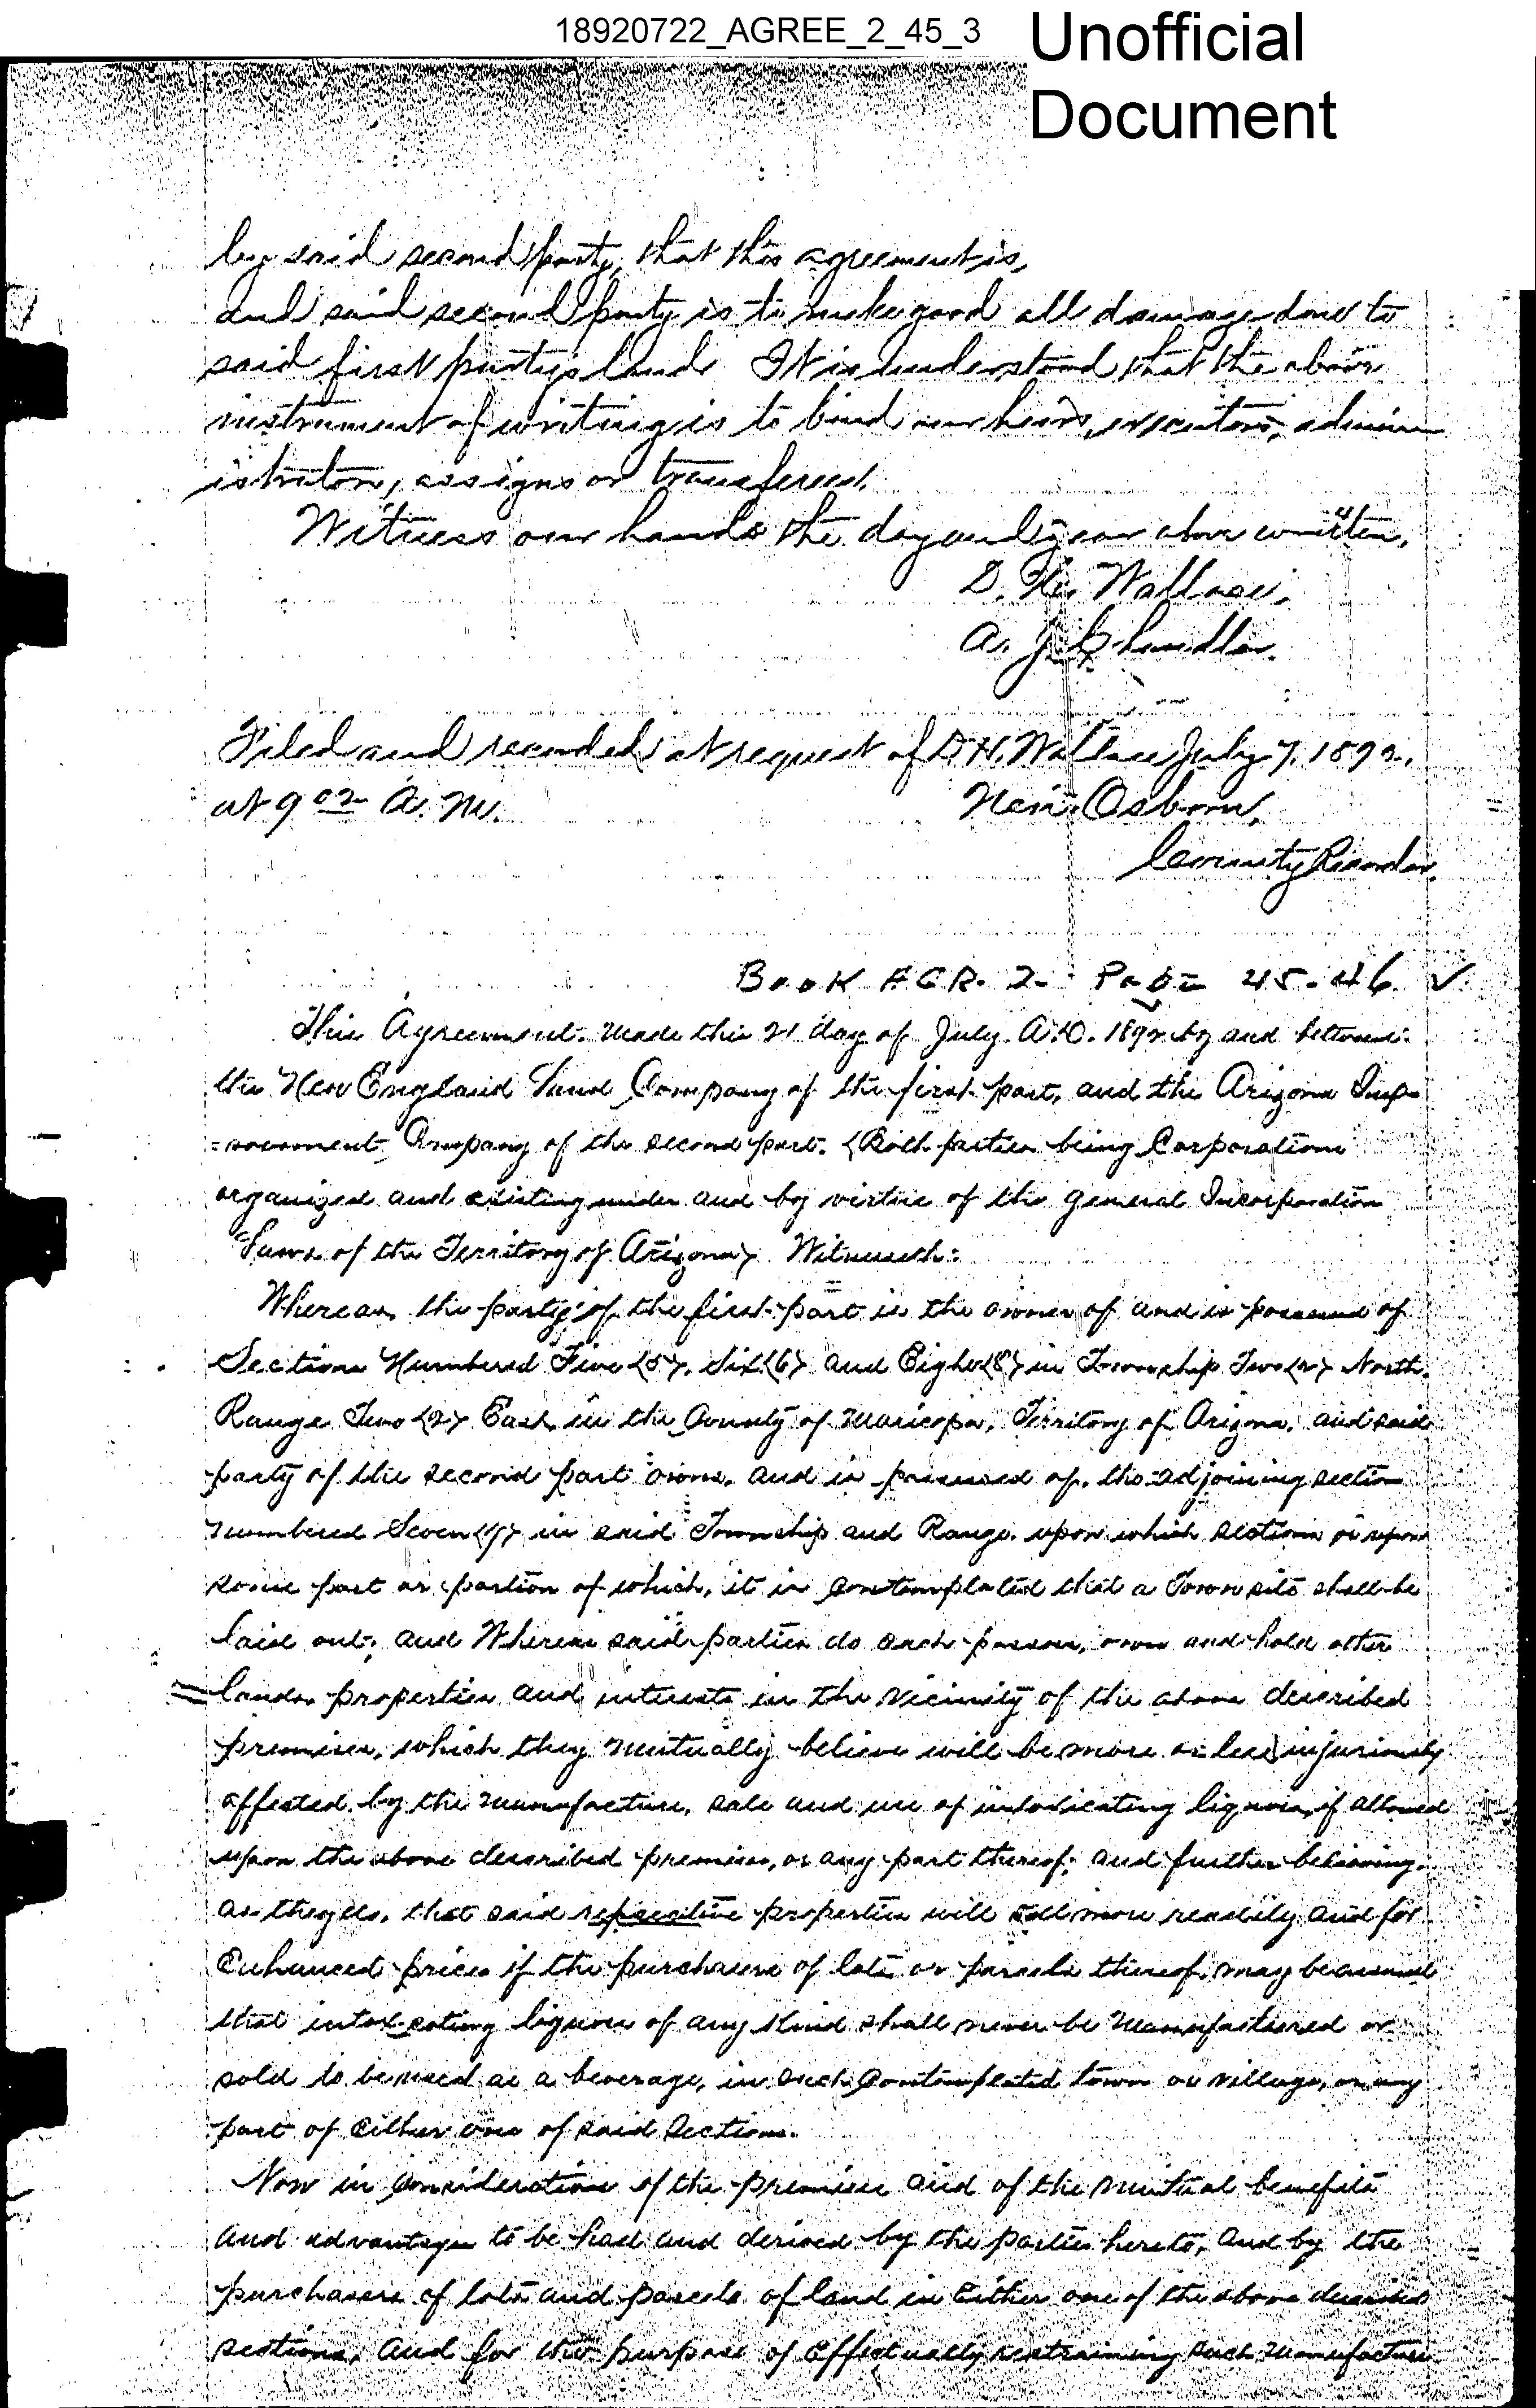 18920722_AGREE_2_45_3
Unofficial
Document
by said second party, that this agreement is,
and said second party is to make good all damage done to
said first party's land. It is understood that the above
instrument of writing is to bind our heirs, executors, admin
istrators, assigns or transferees.
Witness our hands the day and year above written.
D. H. Wallace.
A. J. Chandler.
Filed and recorded at request of D. H. Wallace July 7, 1892.
at 9 02 A. M.
Neri Osborn,
County Recorder.
BOOK AGR. 2 - PAGE 45-46 ✓
This Agreement. Made this 21 day of July A.D. 1892 by and between
the New England Land Company of the first part, and the Arizona Imp-
-rovement Company of the second part. (Both parties being Corporations
organized and existing under and by virtue of the general Incorporation
Laws of the Territory of Arizona) Witnesseth:
Whereas, the party of the first part is the owner of and is possessed of
Sections Numbered Five (5), Six (6) and Eight (8) in Township Two (2) North.
Range Two (2) East, in the County of Maricopa, Territory of Arizona, and said
party of the second part owns, and is possessed of, the adjoining section
numbered Seven (7) in said Township and Range. upon which sections or upon
some part or portion of which, it is contemplated that a Town site shall be
laid out; and Whereas said parties do each possess, own and hold other
lands, properties and interests in the vicinity of the above described
premises, which they mutually believe will be more or less injuriously
affected by the manufacture, sale and use of intoxicating liquors, if allowed
upon the above described premises, or any part thereof; and further believing,
as they do, that said respective properties will sell more readily and for
Enhanced prices if the purchasers of lots or parcels thereof, may be assured
that intoxicating liquors of any kind shall never be manufactured or
sold to be used as a beverage, in such contemplated town or village, or any
part of either one of said Sections.
Now in consideration of the premises and of the mutual benefits
and advantages to be had and derived by the parties hereto, and by the
purchasers of lots and parcels of land in Either one of the above described
sections, and for the purpose of Effectually restraining such manufacture